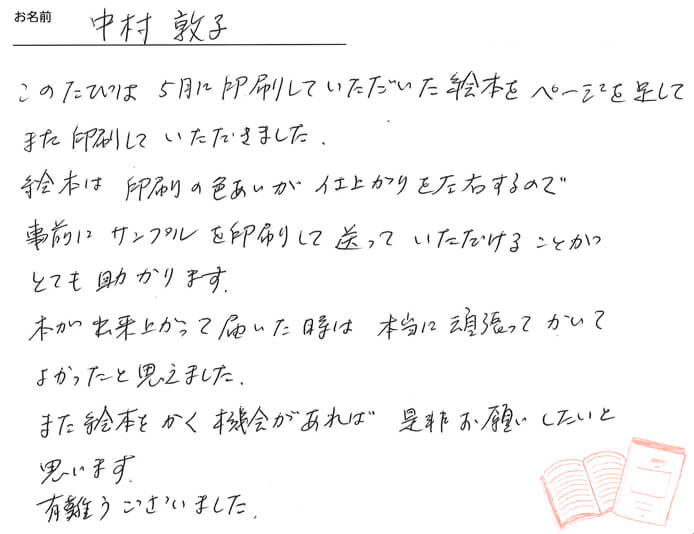 お名前 中村 敦子
このたびは 5月に印刷していただいた絵本をページを足して
また印刷して いただきました.
絵本は 印刷の色あいが 仕上がりを左右するので
事前に サンプルを印刷して送って いただけることが
とても 助かります.
本が出来上がって届いた時は 本当に頑張って かいて
よかったと思えました.
また絵本を かく機会があれば 是非お願いしたいと
思います.
有難うございました.